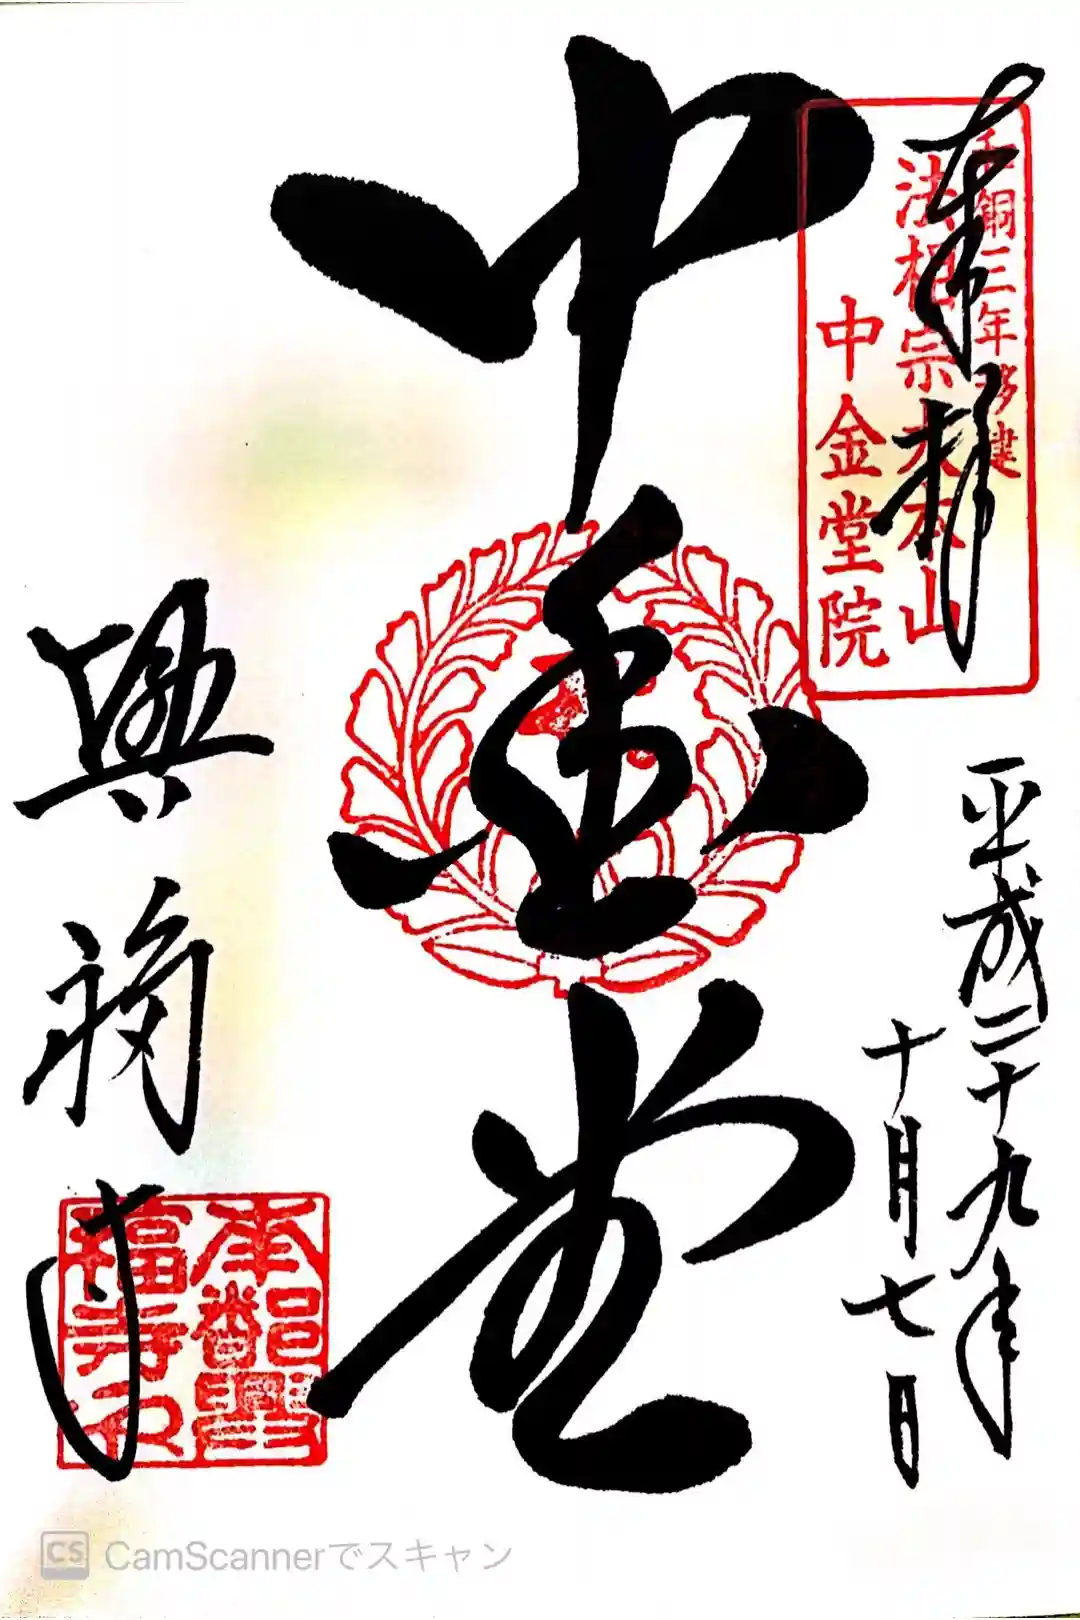 奉拝
和銅三年移建
法相宗大本山
中金堂院
平成二十九年
十月七日
中金堂
興福寺
南都興福寺印
CamScannerでスキャン